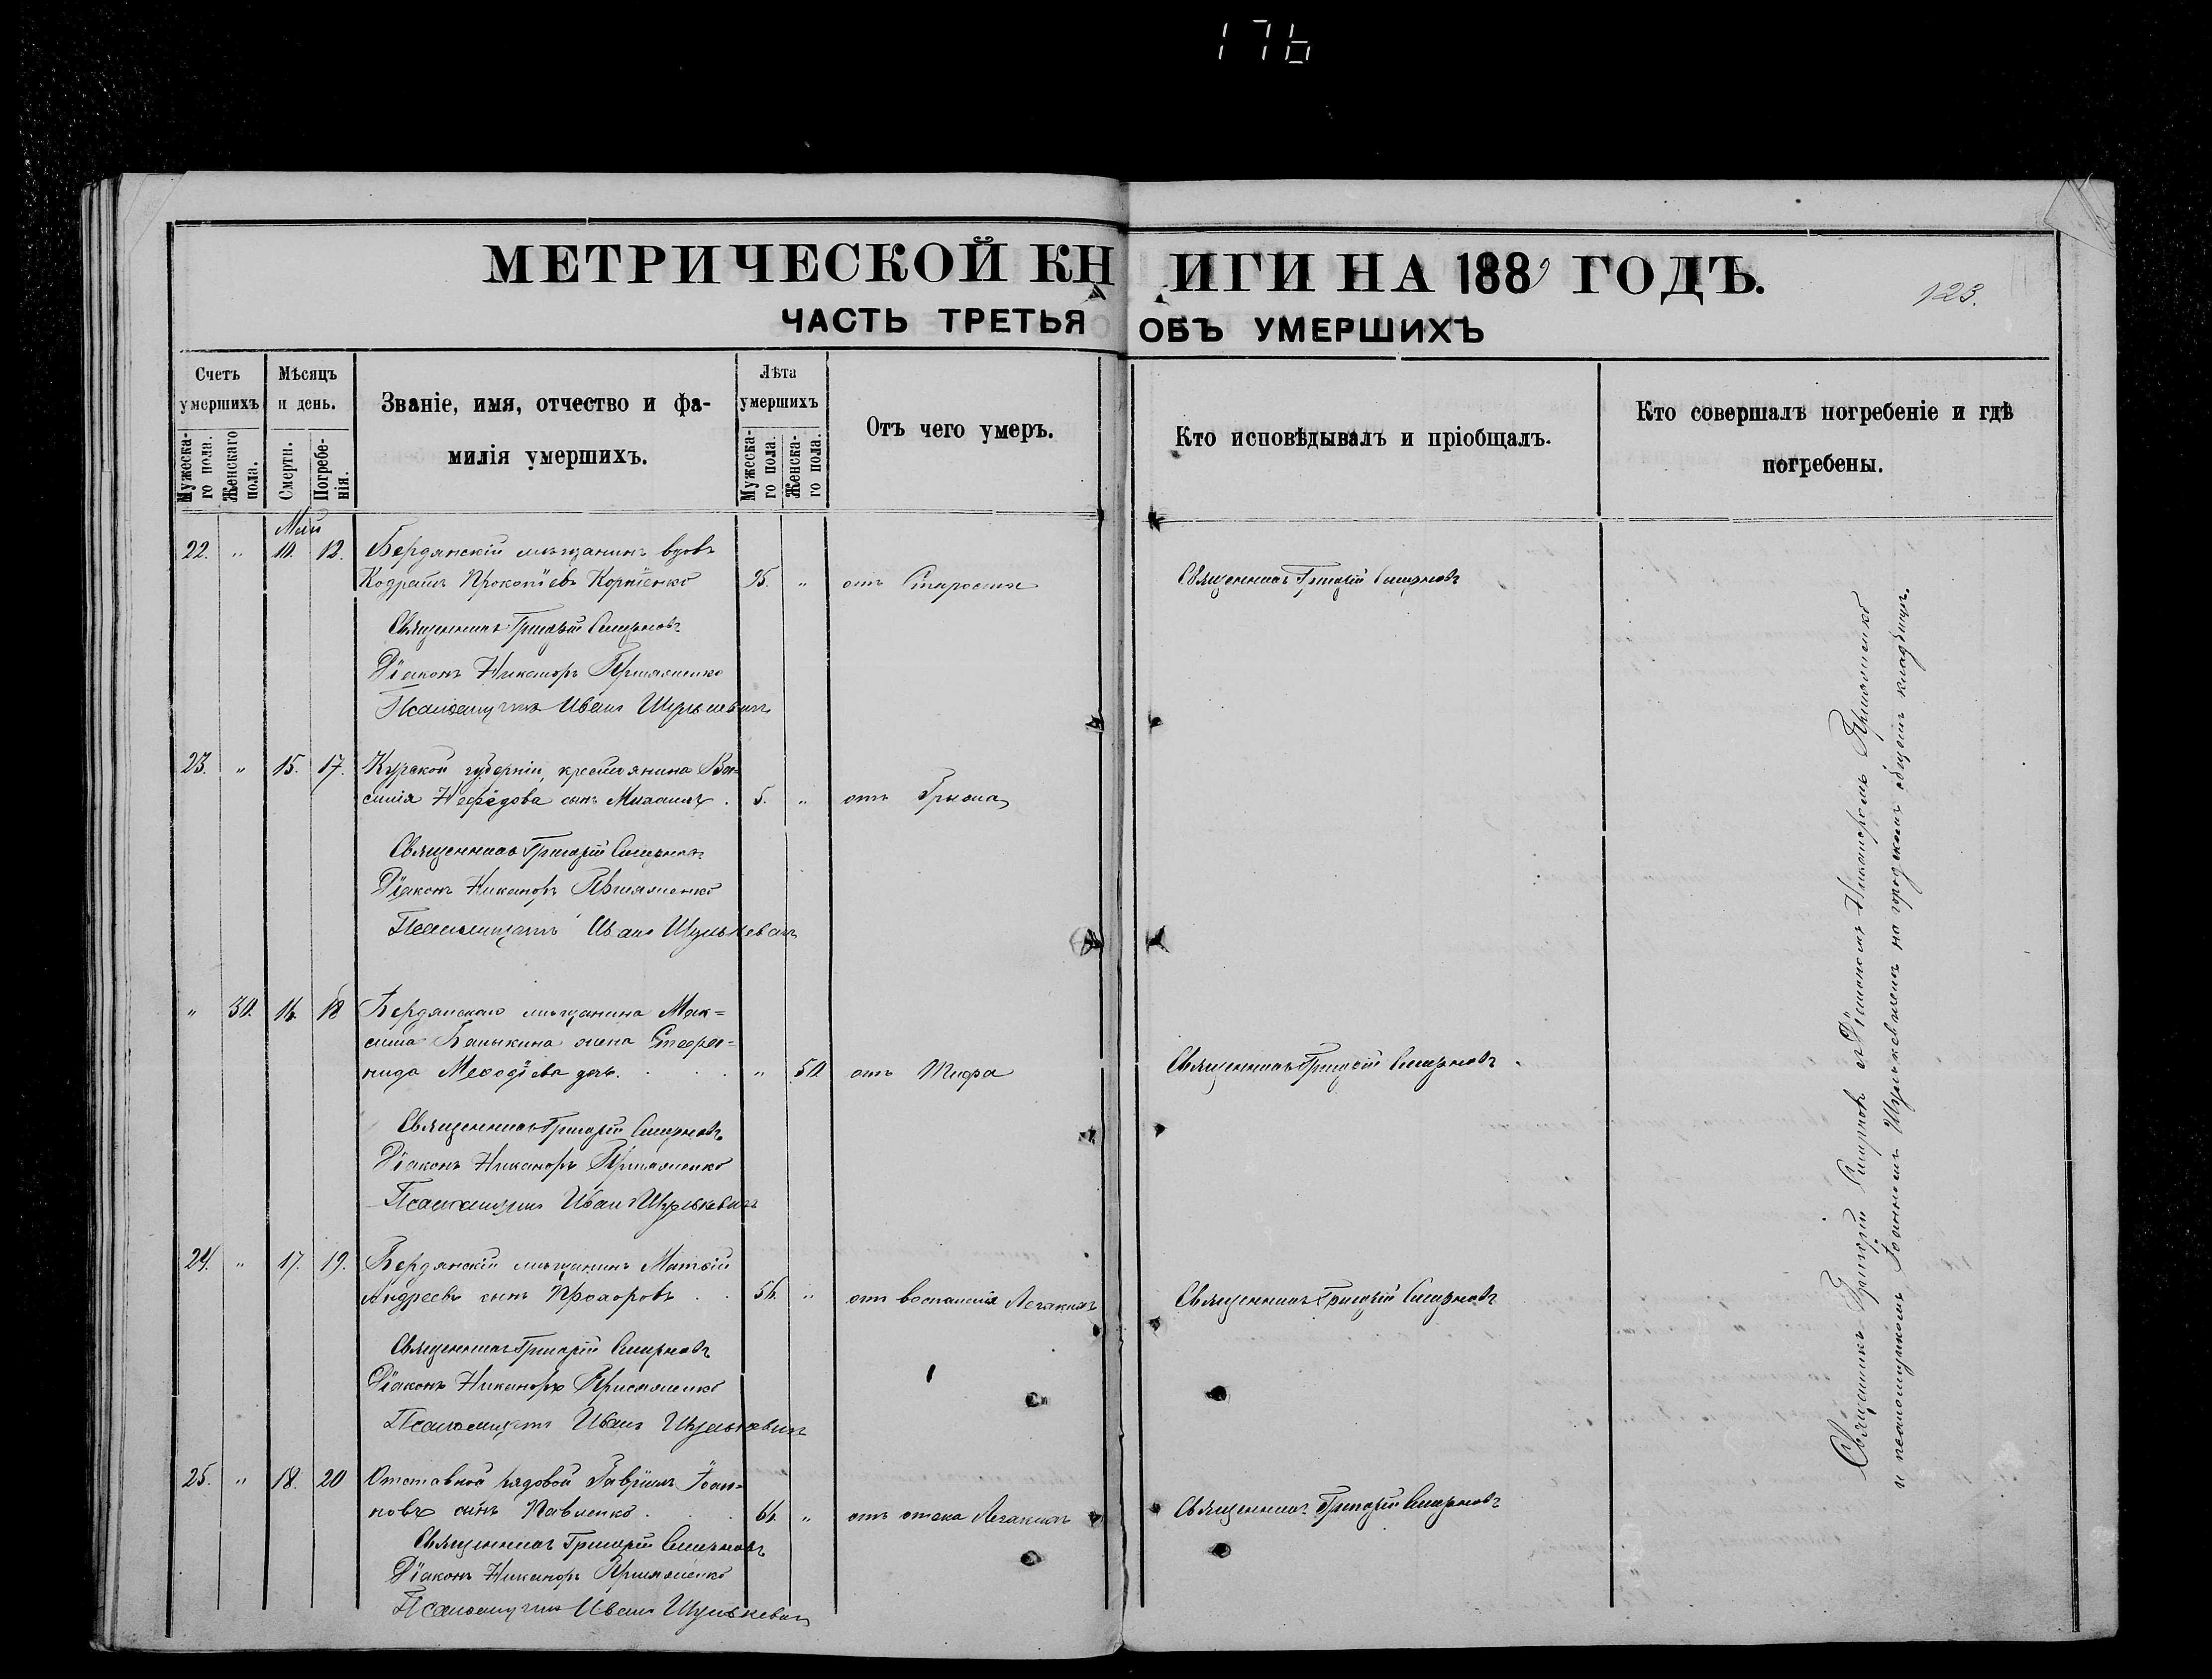 176
МЕТРИЧЕСКОЙ КНИГИ НА 1889 ГОДЪ.
123.
ЧАСТЬ ТРЕТЬЯ ОБЪ УМЕРШИХЪ
Счетъ умершихъ
Мужеска-го пола.
Женскаго пола.
Мѣсяцъ и день.
Смерти.
Погребе-нія.
Званіе, имя, отчество и фа-
милія умершихъ.
Лѣта умершихъ
Мужеска-го пола.
Женска-го пола.
Отъ чего умеръ.
Кто исповѣдывалъ и пріобщалъ.
Кто совершалъ погребеніе и гдѣ
погребены.
Май
22. " 10. 12. Бердянскій мѣщанинъ вдовъ
Кодратъ Прокопіевъ Корніенко 95. " отъ Старости Священникъ Григорій Смирновъ
Священникъ Григорій Смирновъ
Діаконъ Никаноръ
Псаломщикъ Иванъ Шулькевичъ
23. " 15. 17. Курской губерніи, крестьянина Ва=
силія Нефедова сынъ Михаилъ. 5. " отъ
Священникъ Григорій Смирновъ
Діаконъ Никаноръ
Псаломщикъ Иванъ Шулькевичъ
" 30. 16. 18 Бердянскаго мѣщанина Мак=
сима жена Стефа=
нида Меѳодіева дочь. " 50 отъ Тифа Священникъ Григорій Смирновъ
Священникъ Григорій Смирновъ
Діаконъ Никаноръ
Псаломщикъ Иванъ Шулькевичъ
24. " 17. 19. Бердянскій мѣщанинъ Матѳій
Андреевъ сынъ Прохоровъ 56. " отъ воспаленія Легкихъ Священникъ Григорій Смирновъ
Священникъ Григорій Смирновъ
Діаконъ Никаноръ
Псаломщикъ Иванъ Шулькевичъ
25. " 18. 20 Отставной рядовой Гавріилъ Іоан=
новъ сынъ Павленко. " отъ отека Легкихъ Священникъ Григорій Смирновъ
Священникъ Григорій Смирновъ
Діаконъ Никаноръ
Псаломщикъ Иванъ Шулькевичъ
Священникъ Григорій Смирновъ съ Діакономъ Никаноромъ
и псаломщикомъ Іоанномъ Шулькевичемъ на городскомъ общемъ кладбищѣ.